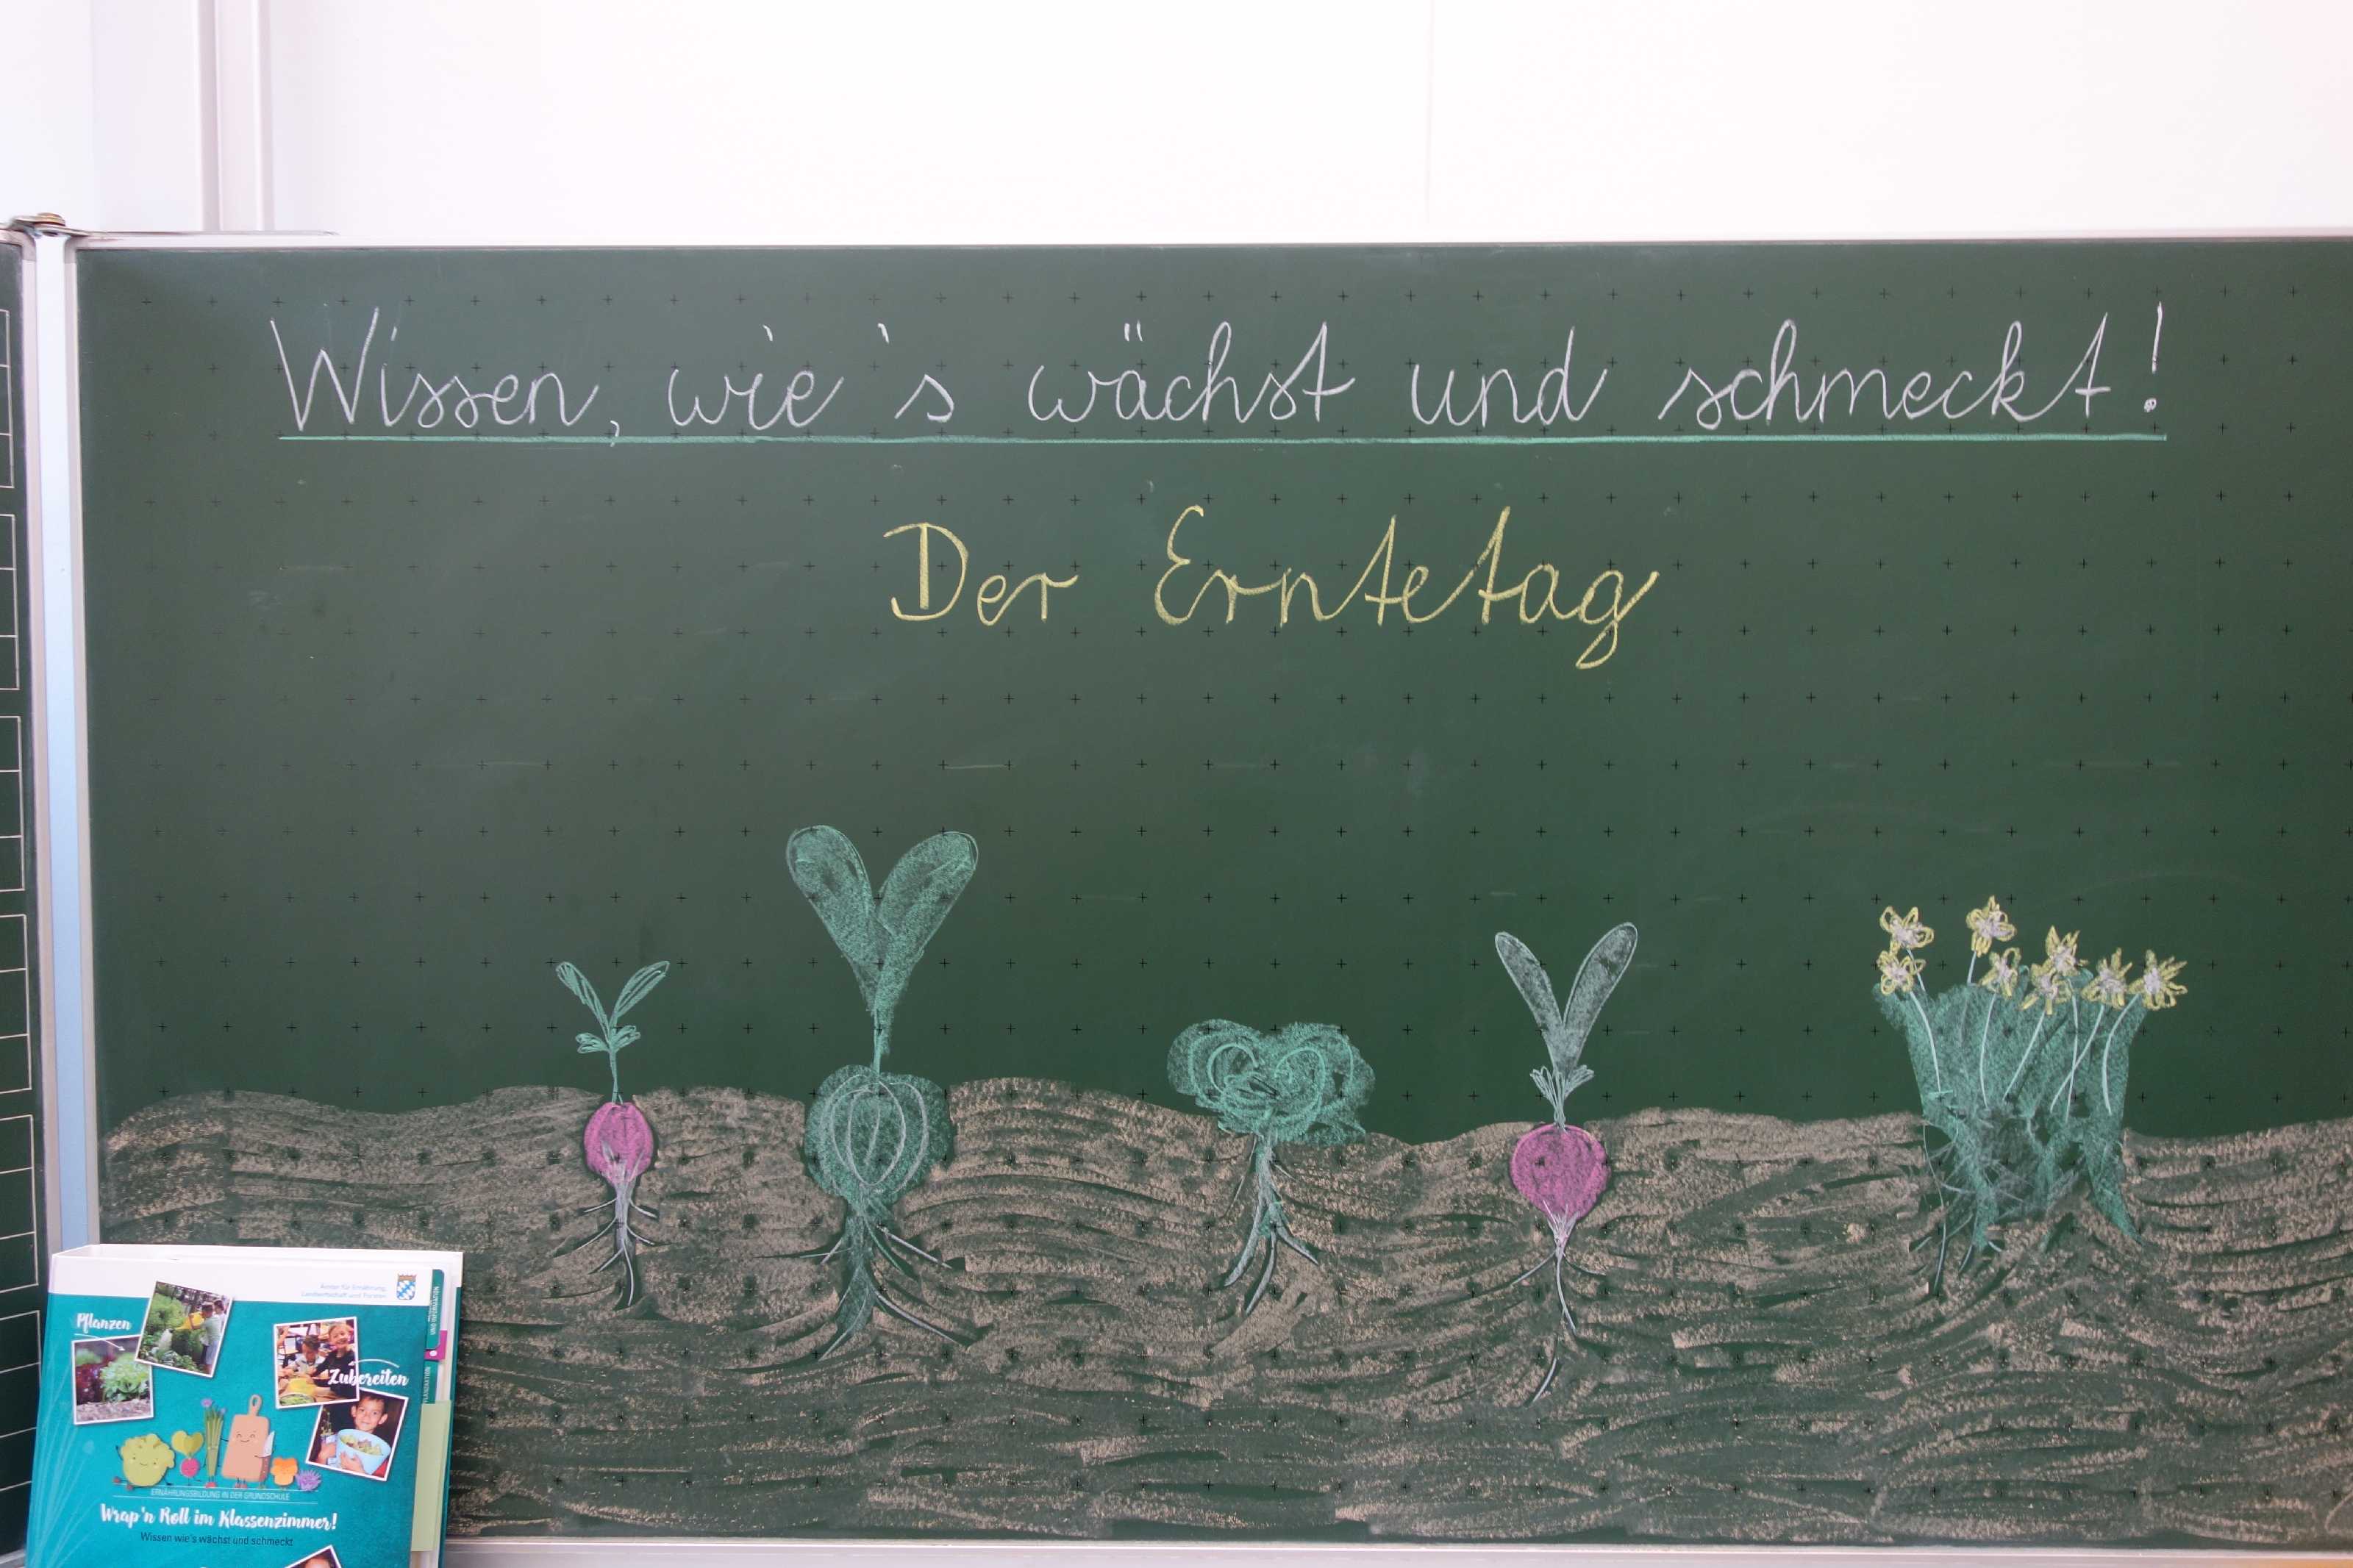 Wissen, wie's wächst und schmeckt!
Der Erntetag
Ämter für Ernährung,
Landwirtschaft und Forsten
Pflanzen
Zubereiten
ERNÄHRUNGSBILDUNG IN DER GRUNDSCHULE
Wrap'n Roll im Klassenzimmer!
Wissen wie's wächst und schmeckt